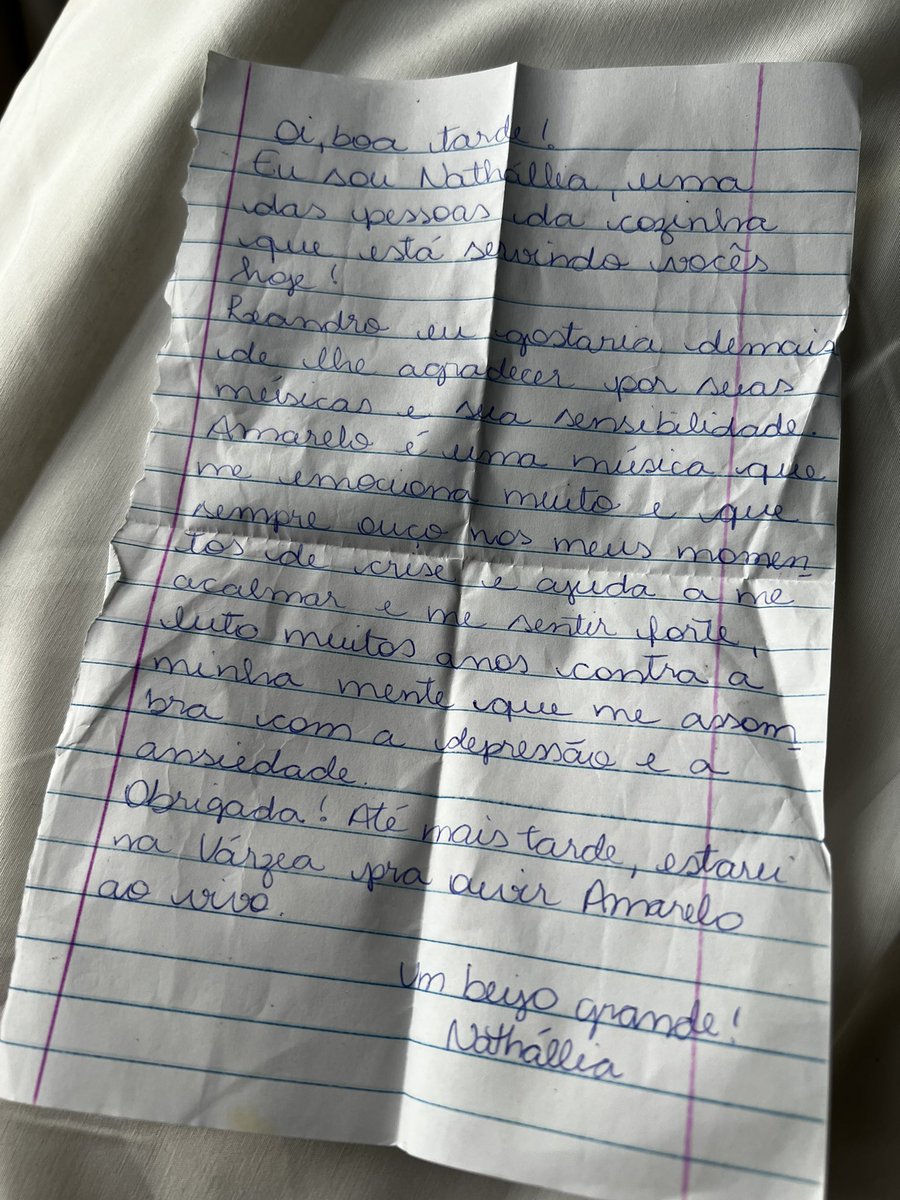 Oi, boa tarde!
Eu sou Nathállia, uma
das pessoas da cozinha
que está servindo vocês
hoje!
Leandro eu gostaria demais
de lhe agradecer por suas
músicas e sua sensibilidade.
Amarelo é uma música que
me emociona muito e que
sempre ouço nos meus momen-
tos de crise e ajuda a me
acalmar e me sentir forte,
luto muitos anos contra a
minha mente que me assom-
bra com a depressão e a
ansiedade.
Obrigada! Até mais tarde, estarei
na Várzea pra ouvir Amarelo
ao vivo.
Um beijo grande!
Nathállia